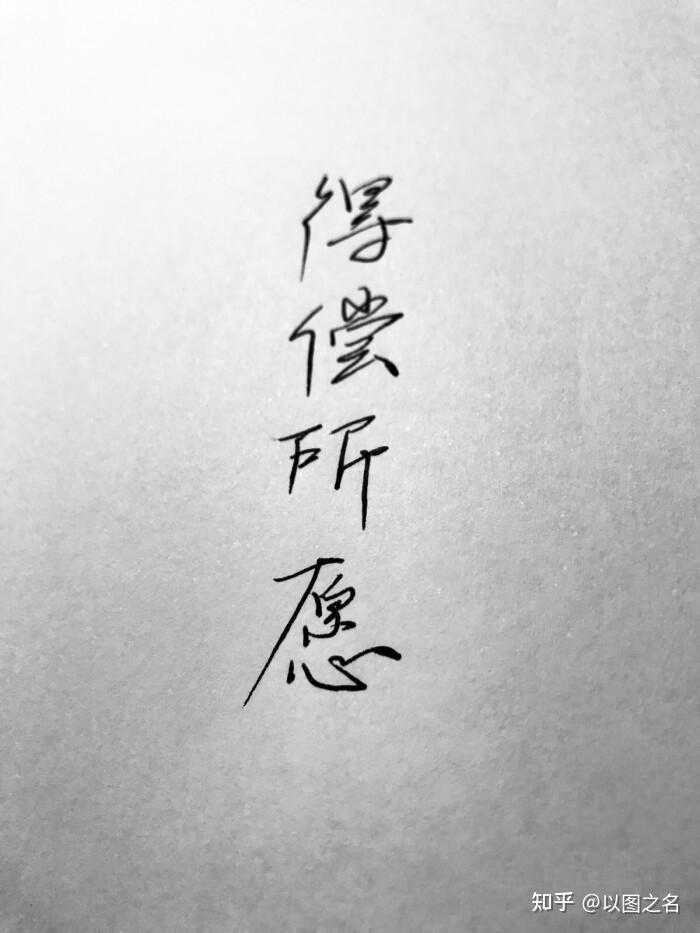 得偿所愿
知乎 @以图之名